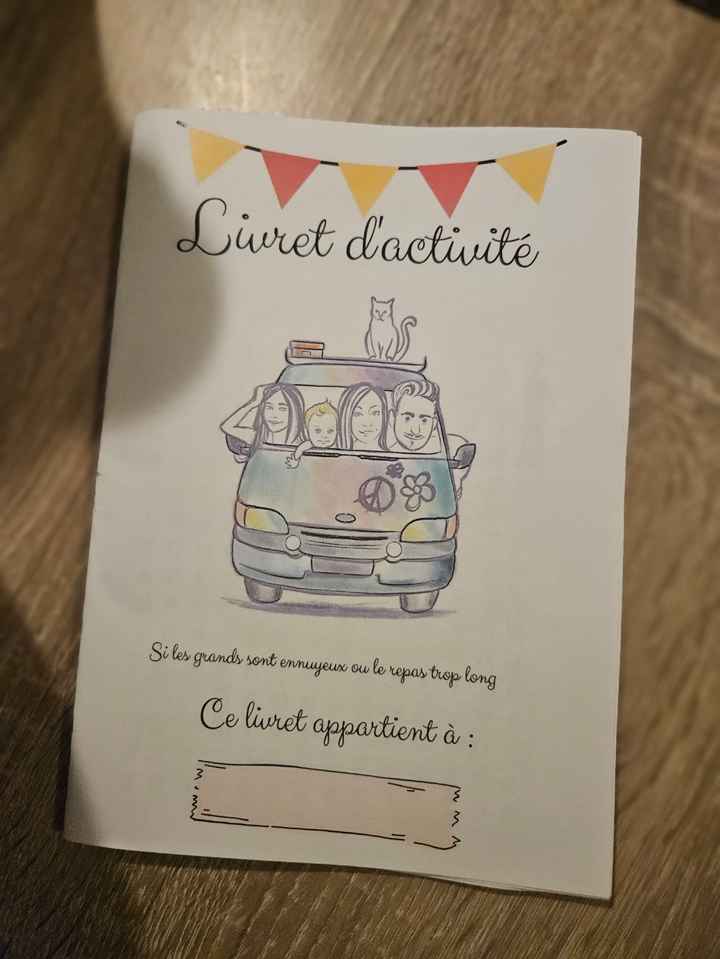 Livret d'activité
Si les grands sont ennuyeux ou le repas trop long
Ce livret appartient à :